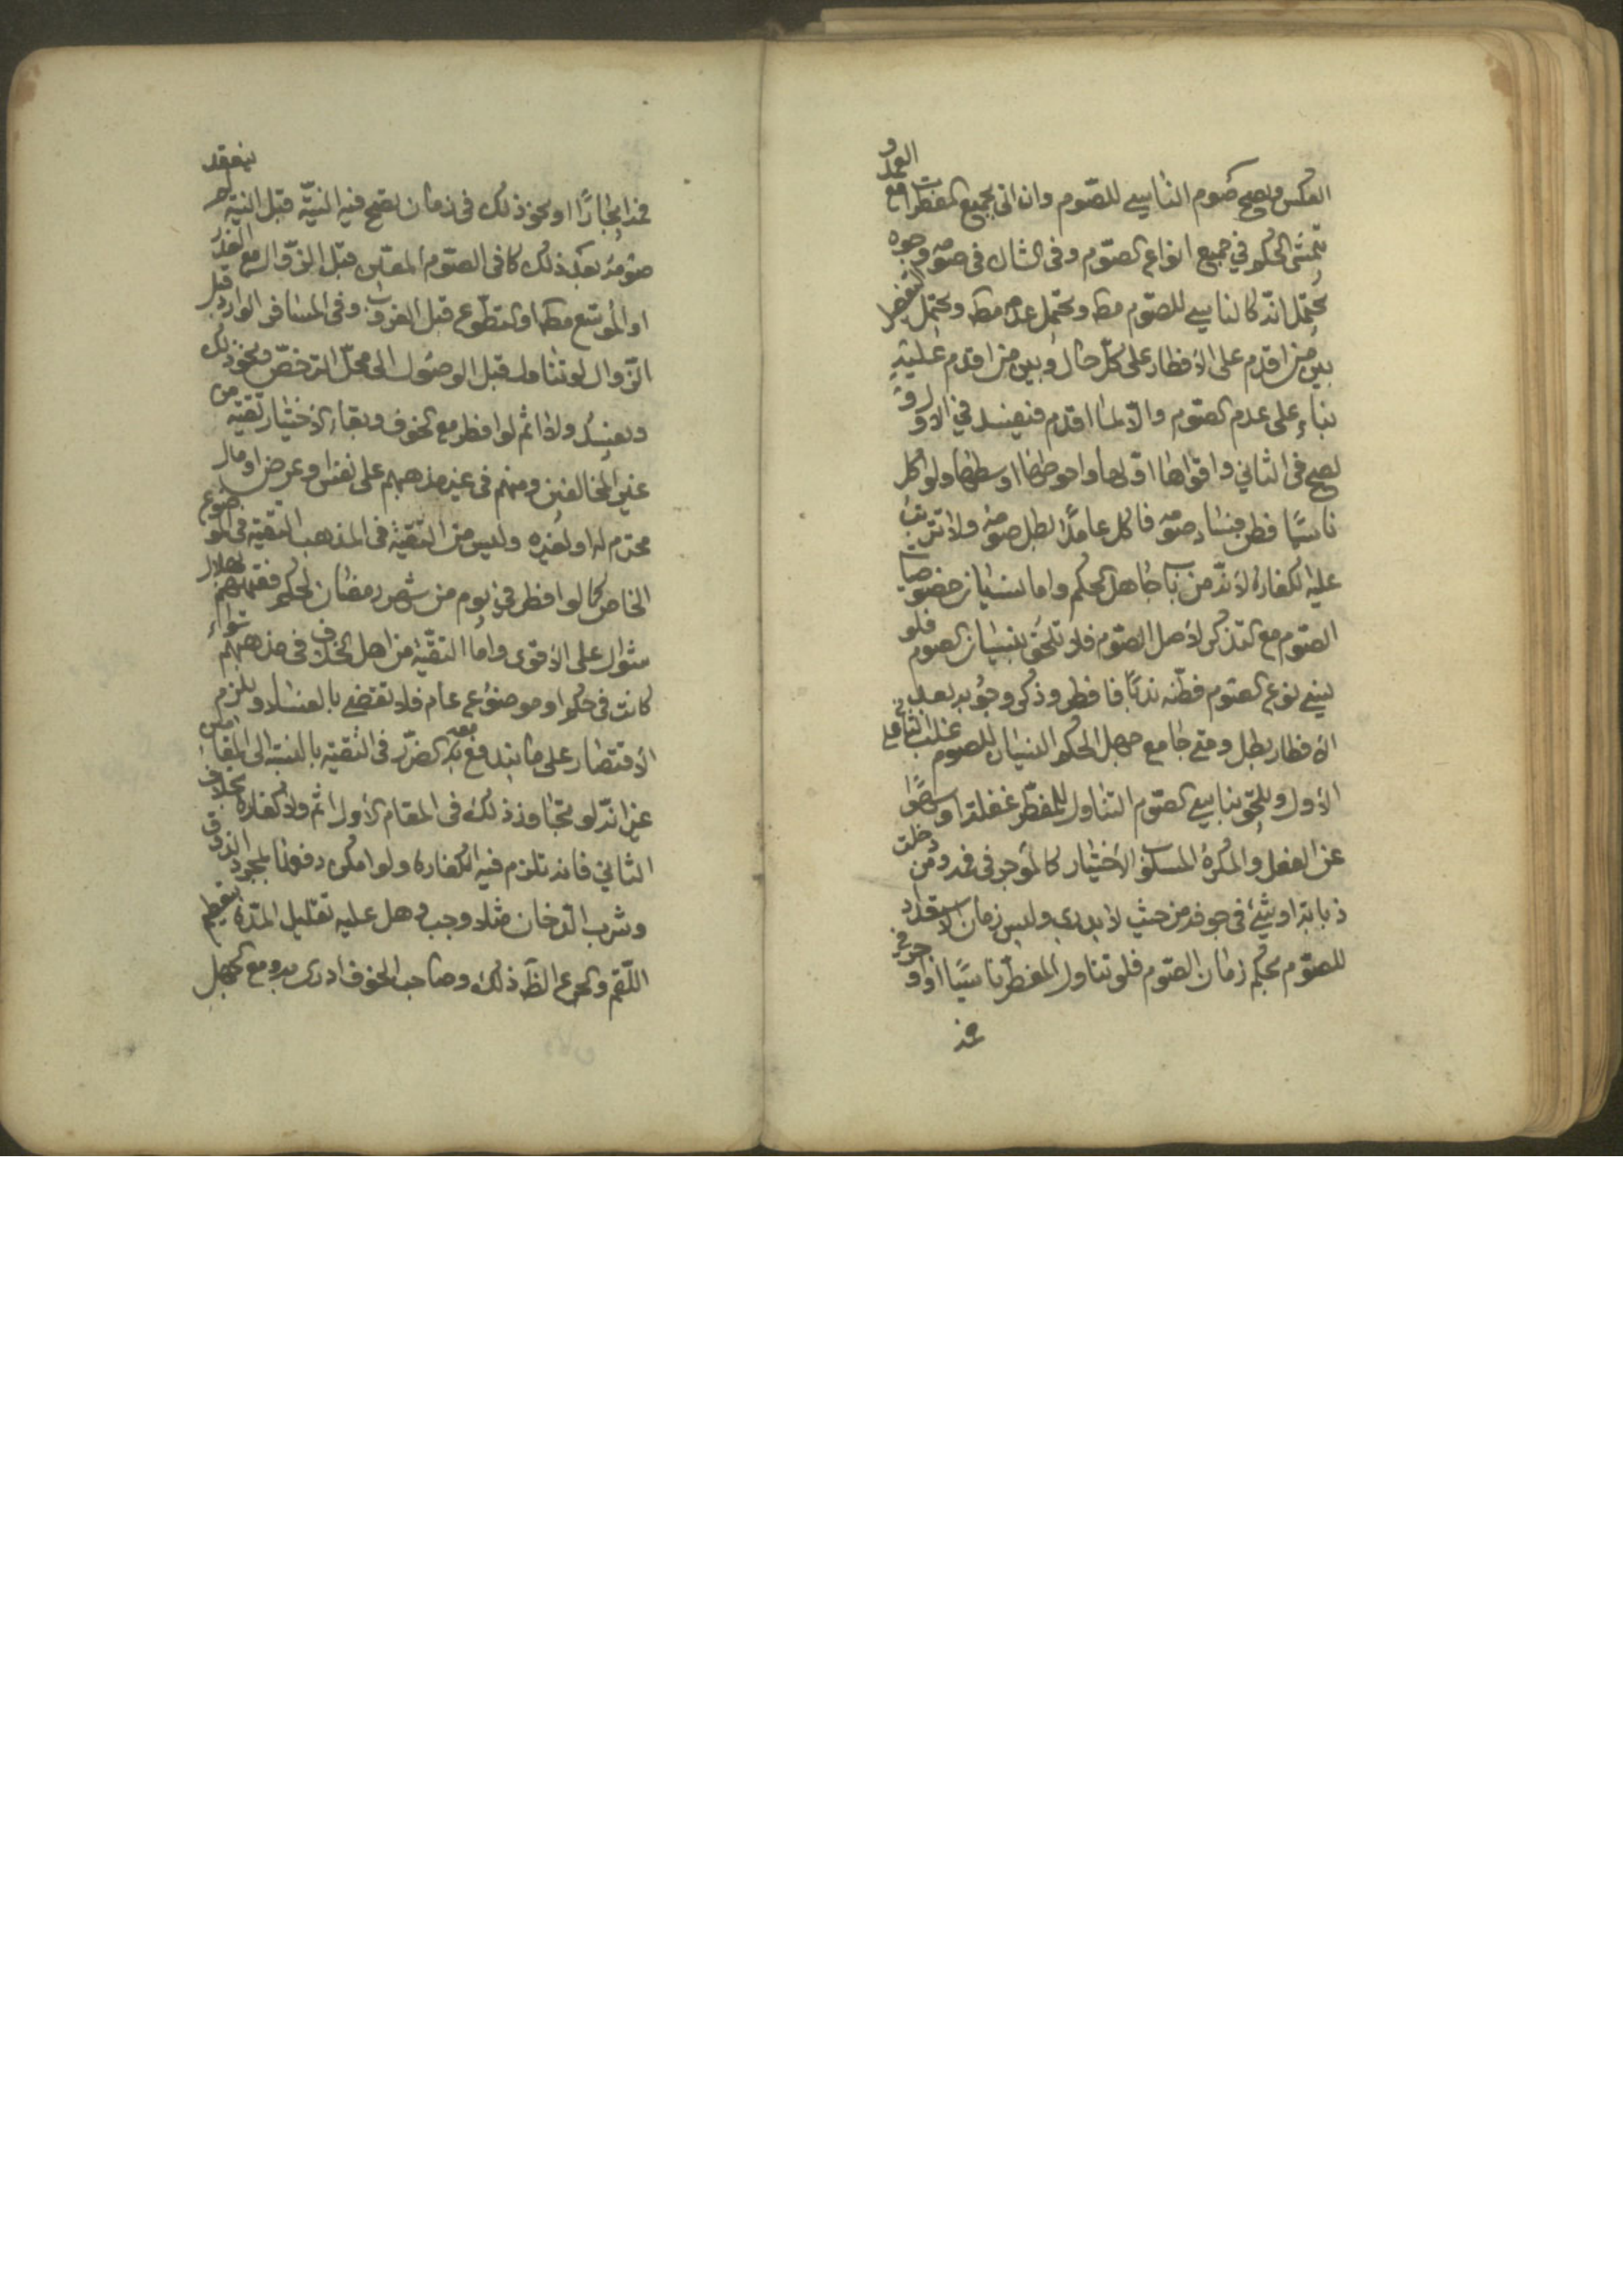 العكس ويصح صوم الناسي للصّوم وان اتى بجميع المفطرات مع العمد و
تمشى الحكم في جميع انواع الصّوم وفى الشاك فى صومه وجوه
يحتمل انّه كالناسي للصّوم مط ويحتمل عدمه مط ويحتمل التفصيل
بين من اقدم على الافطار على كلّ حال وبين من اقدم عليه
بناء على عدم الصّوم والّا لما اقدم فيفسد في الاول و
يصح فى الثاني واقواها اوّلها واحوطها اوسطها ولو اكل
ناسيًا فظن فساد صومه فاكل عامدًا بطل صومه ولا تترتب
عليه الكفاره لانّه من باب جاهل الحكم واما نسيان خصوصيات
الصّوم مع التذكر لاصل الصّوم فلا تلحق بنسيان الصوم فلو
نسي نوع الصّوم فظنه ندبًا فافطر وذكر وجوبه بعد
الافطار بطل ومتى جامع جهل الحكم النسيان للصوم غلب الثاني على
الاول ويلحق بناسي الصّوم التناول للمفطّر غفلة او سهوًا
عن الفعل والمكره المسلوب الاختيار كالموجر فى فمه ومن دخلت
ذبابة او شئ فى جوفه من حيث لا يدري وليس زمان الاستعداد
للصوّم بحكم زمان الصّوم فلو تناول المفطّر ناسيًا او اوجر في
فمه
فمه اجبارًا او نحو ذلك فى زمان يصح فيه النيّة قبل النية ح ينعقد
صومه بعد ذلك كما فى الصوم المعيّن قبل الزوال مع العذر
او الموسّع مط والتطوع قبل الغروب وفى المسافر الوارد قبل
الزّوال لو تناول قبل الوصول الى محلّ الترخّص ونحو ذلك
ويفسد ولا اثم لو افطر مع الخوف وبقاء الاختيار تقيّة من
غير المخالفين ومنهم فى غير مذهبهم على نفس او عرض او مال
محترم له او لغيره وليس من التقيّة فى المذهب التقيّة فى الموضوع
الخاص كما لو افطر في يوم من شهر رمضان لحكم فقهائهم بهلال
شوال على الاقوى واما التقيّة من اهل الخلاف فى مذهبهم سواء
كانت فى حكم او موضوع عام فلا تقضي بالفساد ويلزم
الاقتصار على ما يندفع به الضّرر فى التقيّة بالنسبة الى المقامين
غير انّه لو تجاوز ذلك فى المقام الاول اثم ولا كفارة بخلاف
الثاني فانه تلزم فيه الكفاره ولو امكن دفعها بمجرد الذوق
وشرب الدّخان مثلا وجب وهل عليه تقليل المدة بتعظيم
اللّقم والجرع الظّ ذلك وصاحب الخوف ادرى به ومع الجهل